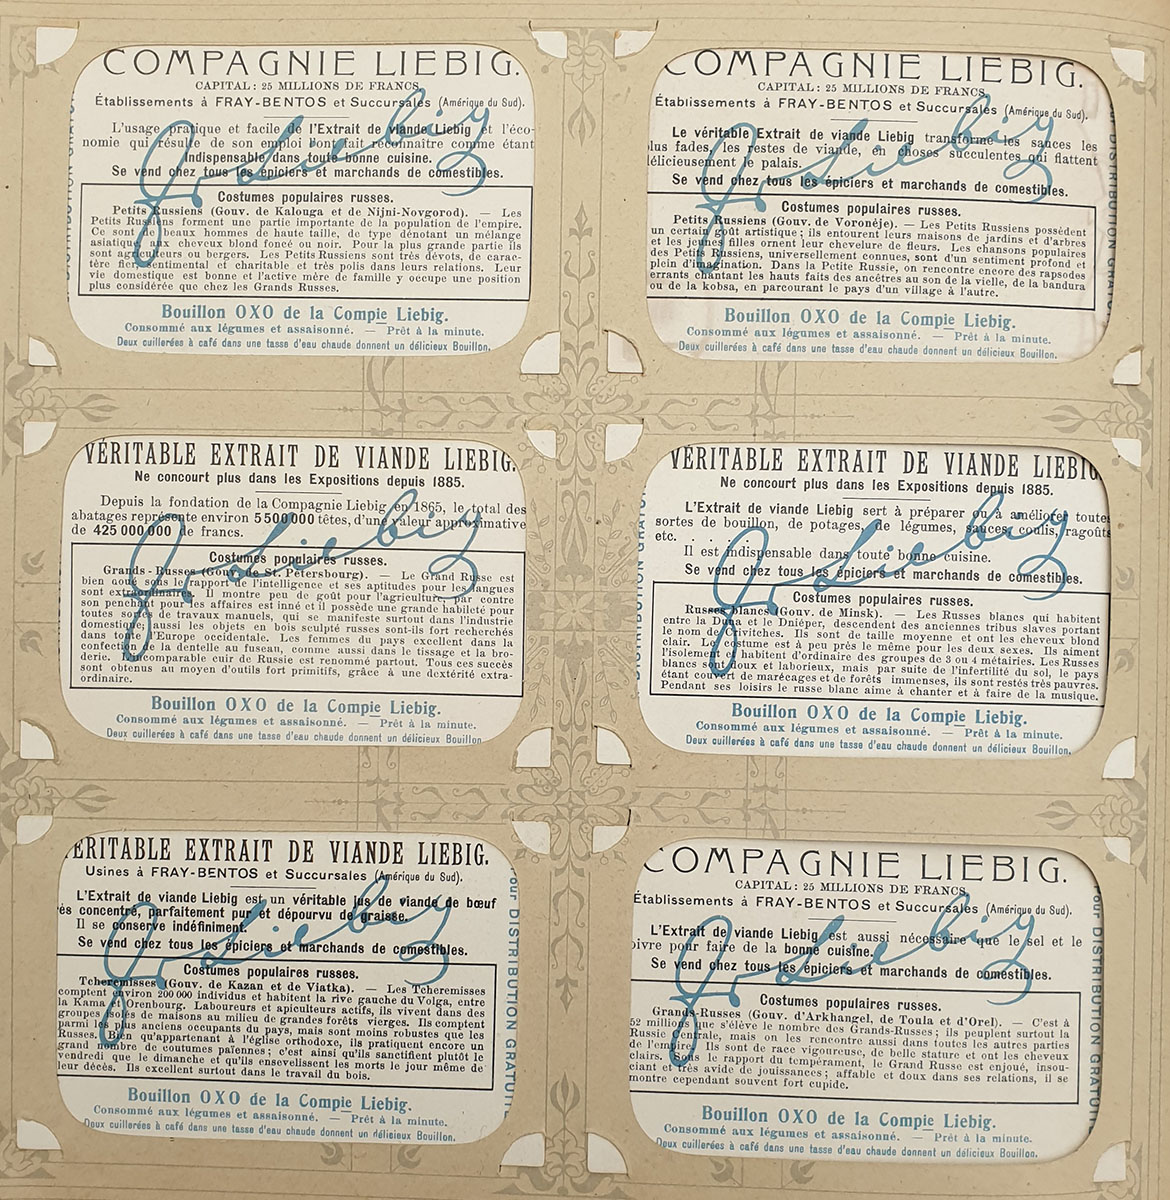 COMPAGNIE LIEBIG.
CAPITAL: 25 MILLIONS DE FRANCS
Établissements à FRAY-BENTOS et Succursales (Amérique du Sud).
L'usage pratique et facile de l'Extrait de viande Liebig et l'éco-
nomie qui résulte de son emploi l'ont fait reconnaître comme étant
Indispensable dans toute bonne cuisine.
Se vend chez tous les épiciers et marchands de comestibles.
Costumes populaires russes.
Petits Russiens (Gouv. de Kalouga et de Nijni-Novgorod). — Les
Petits Russiens forment une partie importante de la population de l'empire.
Ce sont de beaux hommes de haute taille, de type dénotant un mélange
asiatique aux cheveux blond foncé ou noir. Pour la plus grande partie ils
sont agriculteurs ou bergers. Les Petits Russiens sont très dévots, de carac-
tère fier, sentimental et charitable et très polis dans leurs relations. Leur
vie domestique est bonne et l'active mère de famille y occupe une position
plus considérée que chez les Grands Russes.
Bouillon OXO de la Compie Liebig.
Consommé aux légumes et assaisonné. — Prêt à la minute.
Deux cuillerées à café dans une tasse d'eau chaude donnent un délicieux Bouillon.
DISTRIBUTION GRATUI
J. v Liebig
COMPAGNIE LIEBIG.
CAPITAL: 25 MILLIONS DE FRANCS
Établissements à FRAY-BENTOS et Succursales (Amérique du Sud).
Le véritable Extrait de viande Liebig transforme les sauces les
plus fades, les restes de viande, en choses succulentes qui flattent
délicieusement le palais.
Se vend chez tous les épiciers et marchands de comestibles.
Costumes populaires russes.
Petits Russiens (Gouv. de Voronèje). — Les Petits Russiens possèdent
un certain goût artistique; ils entourent leurs maisons de jardins et d'arbres
et les jeunes filles ornent leur chevelure de fleurs. Les chansons populaires
des Petits Russiens, universellement connues, sont d'un sentiment profond et
plein d'imagination. Dans la Petite Russie, on rencontre encore des rapsodes
errants chantant les hauts faits des ancêtres au son de la vielle, de la bandura
ou de la kobsa, en parcourant le pays d'un village à l'autre.
Bouillon OXO de la Compie Liebig.
Consommé aux légumes et assaisonné. — Prêt à la minute.
Deux cuillerées à café dans une tasse d'eau chaude donnent un délicieux Bouillon.
DISTRIBUTION GRATUI
J. v Liebig
VÉRITABLE EXTRAIT DE VIANDE LIEBIG.
Ne concourt plus dans les Expositions depuis 1885.
Depuis la fondation de la Compagnie Liebig en 1865, le total des
abatages représente environ 5500000 têtes, d'une valeur approximative
de 425 000 000 de francs.
Costumes populaires russes.
Grands-Russes (Gouv. de St. Petersbourg). — Le Grand Russe est
bien doué sous le rapport de l'intelligence et ses aptitudes pour les langues
sont extraordinaires. Il montre peu de goût pour l'agriculture, par contre
son penchant pour les affaires est inné et il possède une grande habileté pour
toutes sortes de travaux manuels, qui se manifeste surtout dans l'industrie
domestique; aussi les objets en bois sculpté russes sont-ils fort recherchés
dans toute l'Europe occidentale. Les femmes du pays excellent dans la
confection de la dentelle au fuseau, comme aussi dans le tissage et la bro-
derie. L'incomparable cuir de Russie est renommé partout. Tous ces succès
sont obtenus au moyen d'outils fort primitifs, grâce à une dextérité extra-
ordinaire.
Bouillon OXO de la Compie Liebig.
Consommé aux légumes et assaisonné. — Prêt à la minute.
Deux cuillerées à café dans une tasse d'eau chaude donnent un délicieux Bouillon.
J. v Liebig
VÉRITABLE EXTRAIT DE VIANDE LIEBIG
Ne concourt plus dans les Expositions depuis 1885.
L'Extrait de viande Liebig sert à préparer ou à améliorer toutes
sortes de bouillon, de potages, de légumes, sauces, coulis, ragoûts
etc. . . . .
Il est indispensable dans toute bonne cuisine.
Se vend chez tous les épiciers et marchands de comestibles.
Costumes populaires russes.
Russes blancs (Gouv. de Minsk). — Les Russes blancs qui habitent
entre la Duna et le Dniéper, descendent des anciennes tribus slaves portant
le nom de Krivitches. Ils sont de taille moyenne et ont les cheveux blond
clair. Le costume est à peu près le même pour les deux sexes. Ils aiment
l'isolement et habitent d'ordinaire des groupes de 3 ou 4 métairies. Les Russes
blancs sont doux et laborieux, mais par suite de l'infertilité du sol, le pays
étant couvert de marécages et de forêts immenses, ils sont restés très pauvres.
Pendant ses loisirs le russe blanc aime à chanter et à faire de la musique.
Bouillon OXO de la Compie Liebig.
Consommé aux légumes et assaisonné. — Prêt à la minute.
Deux cuillerées à café dans une tasse d'eau chaude donnent un délicieux Bouillon.
DISTRIBUTION GRATUI
J. v Liebig
VÉRITABLE EXTRAIT DE VIANDE LIEBIG.
Usines à FRAY-BENTOS et Succursales (Amérique du Sud).
L'Extrait de viande Liebig est un véritable jus de viande de bœuf
très concentré, parfaitement pur et dépourvu de graisse.
Il se conserve indéfiniment.
Se vend chez tous les épiciers et marchands de comestibles.
Costumes populaires russes.
Tcheremisses (Gouv. de Kazan et de Viatka). — Les Tcheremisses
comptent environ 200000 individus et habitent la rive gauche du Volga, entre
la Kama et Orenbourg. Laboureurs et apiculteurs actifs, ils vivent dans des
groupes isolés de maisons au milieu de grandes forêts vierges. Ils comptent
parmi les plus anciens occupants du pays, mais sont moins robustes que les
Russes. Bien qu'appartenant à l'église orthodoxe, ils pratiquent encore un
grand nombre de coutumes païennes; c'est ainsi qu'ils sanctifient plutôt le
vendredi que le dimanche et qu'ils ensevelissent les morts le jour même de
leur décès. Ils excellent surtout dans le travail du bois.
Bouillon OXO de la Compie Liebig.
Consommé aux légumes et assaisonné. — Prêt à la minute.
Deux cuillerées à café dans une tasse d'eau chaude donnent un délicieux Bouillon.
Pour DISTRIBUTION GRATUITE
J. v Liebig
COMPAGNIE LIEBIG.
CAPITAL: 25 MILLIONS DE FRANCS
Établissements à FRAY-BENTOS et Succursales (Amérique du Sud).
L'Extrait de viande Liebig est aussi nécessaire que le sel et le
poivre pour faire de la bonne cuisine.
Se vend chez tous les épiciers et marchands de comestibles.
Costumes populaires russes.
Grands-Russes (Gouv. d'Arkhangel, de Toula et d'Orel). — C'est à
52 millions que s'élève le nombre des Grands-Russes; ils peuplent surtout la
Russie Centrale, mais on les rencontre aussi dans toutes les autres parties
de l'empire. Ils sont de race vigoureuse, de belle stature et ont les cheveux
clairs. Sous le rapport du tempérament, le Grand Russe est enjoué, insou-
ciant et très avide de jouissances; affable et doux dans ses relations, il se
montre cependant souvent fort cupide.
Bouillon OXO de la Compie Liebig.
Consommé aux légumes et assaisonné. — Prêt à la minute.
Deux cuillerées à café dans une tasse d'eau chaude donnent un délicieux Bouillon.
Pour DISTRIBUTION GRATUI
J. v Liebig